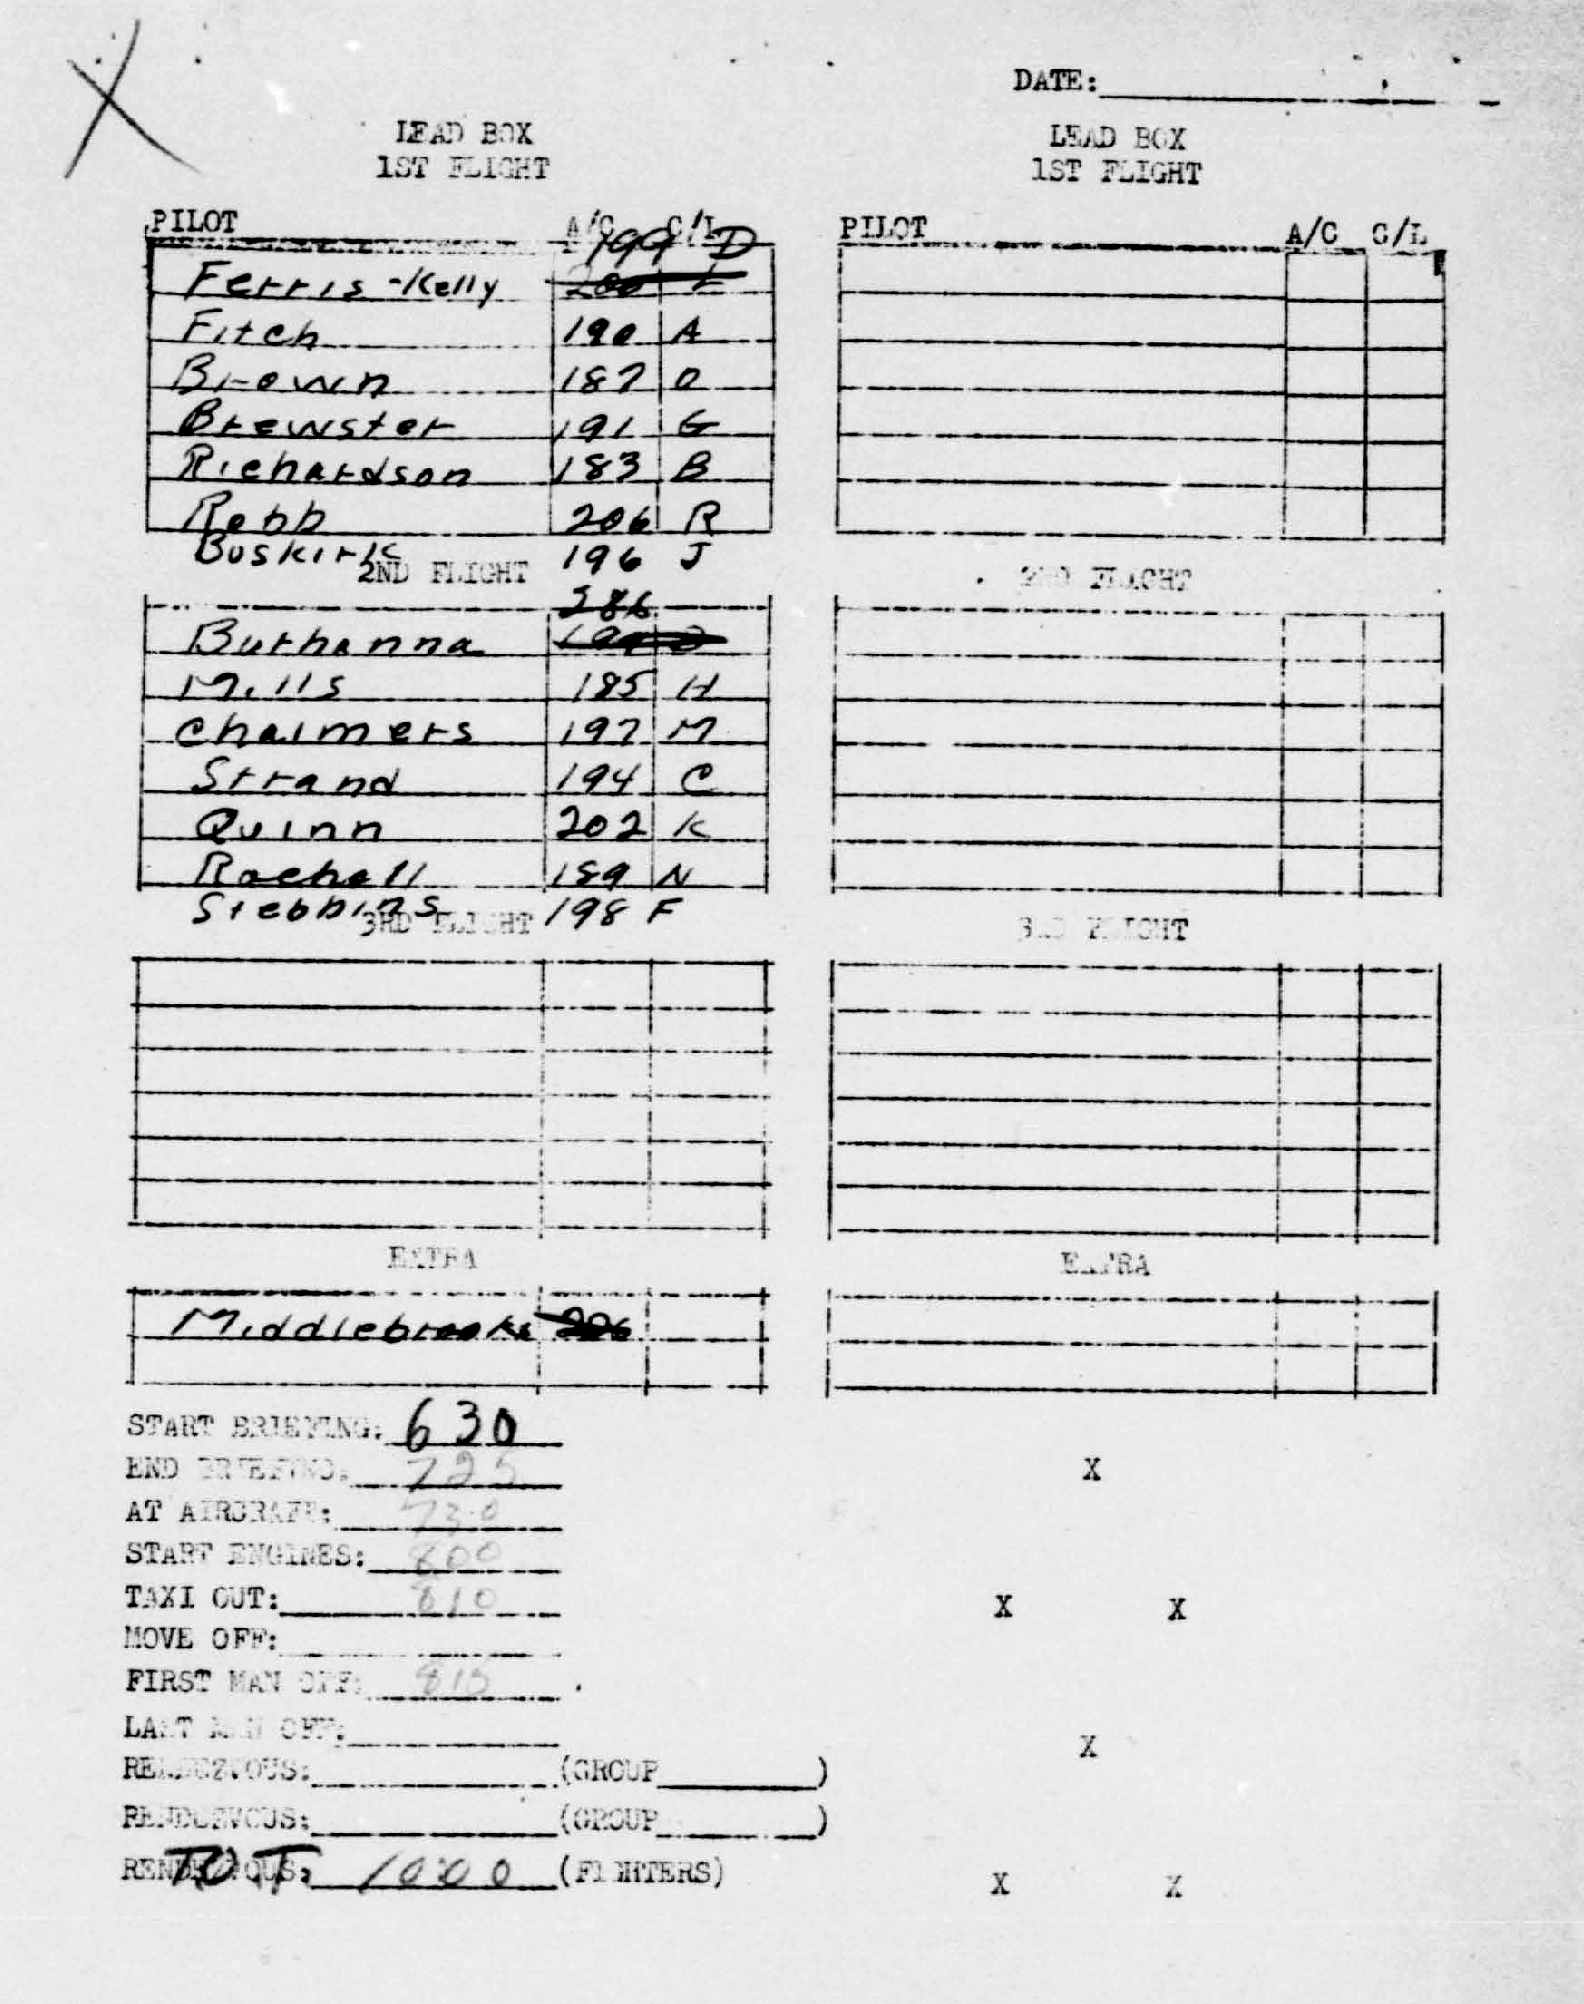 DATE:
LEAD BOX
1ST FLIGHT
PILOT A/C C/L
199 D
Ferris-Kelly 200 L
Fitch 190 A
Brown 187 O
Brewster 191 G
Richardson 183 B
Robb 206 R
Buskirk 196 J
2ND FLIGHT
Burhanna 199 D
Mills 185 H
Chalmers 197 M
Strand 194 C
Quinn 202 K
Rachall 189 N
Stebbins 198 F
3RD FLIGHT
EXTRA
Middlebrooks 206
START BRIEFING: 630
END BRIEFING: 725
AT AIRCRAFT: 730
START ENGINES: 800
TAXI OUT: 810
MOVE OFF:
FIRST MAN OFF: 815
LAST MAN OFF:
RENDEZVOUS: (GROUP )
RENDEZVOUS: (GROUP )
RENDEZVOUS: TOT 1000 (FIGHTERS)
LEAD BOX
1ST FLIGHT
PILOT A/C C/L
2ND FLIGHT
3RD FLIGHT
EXTRA
X
X X
X
X X